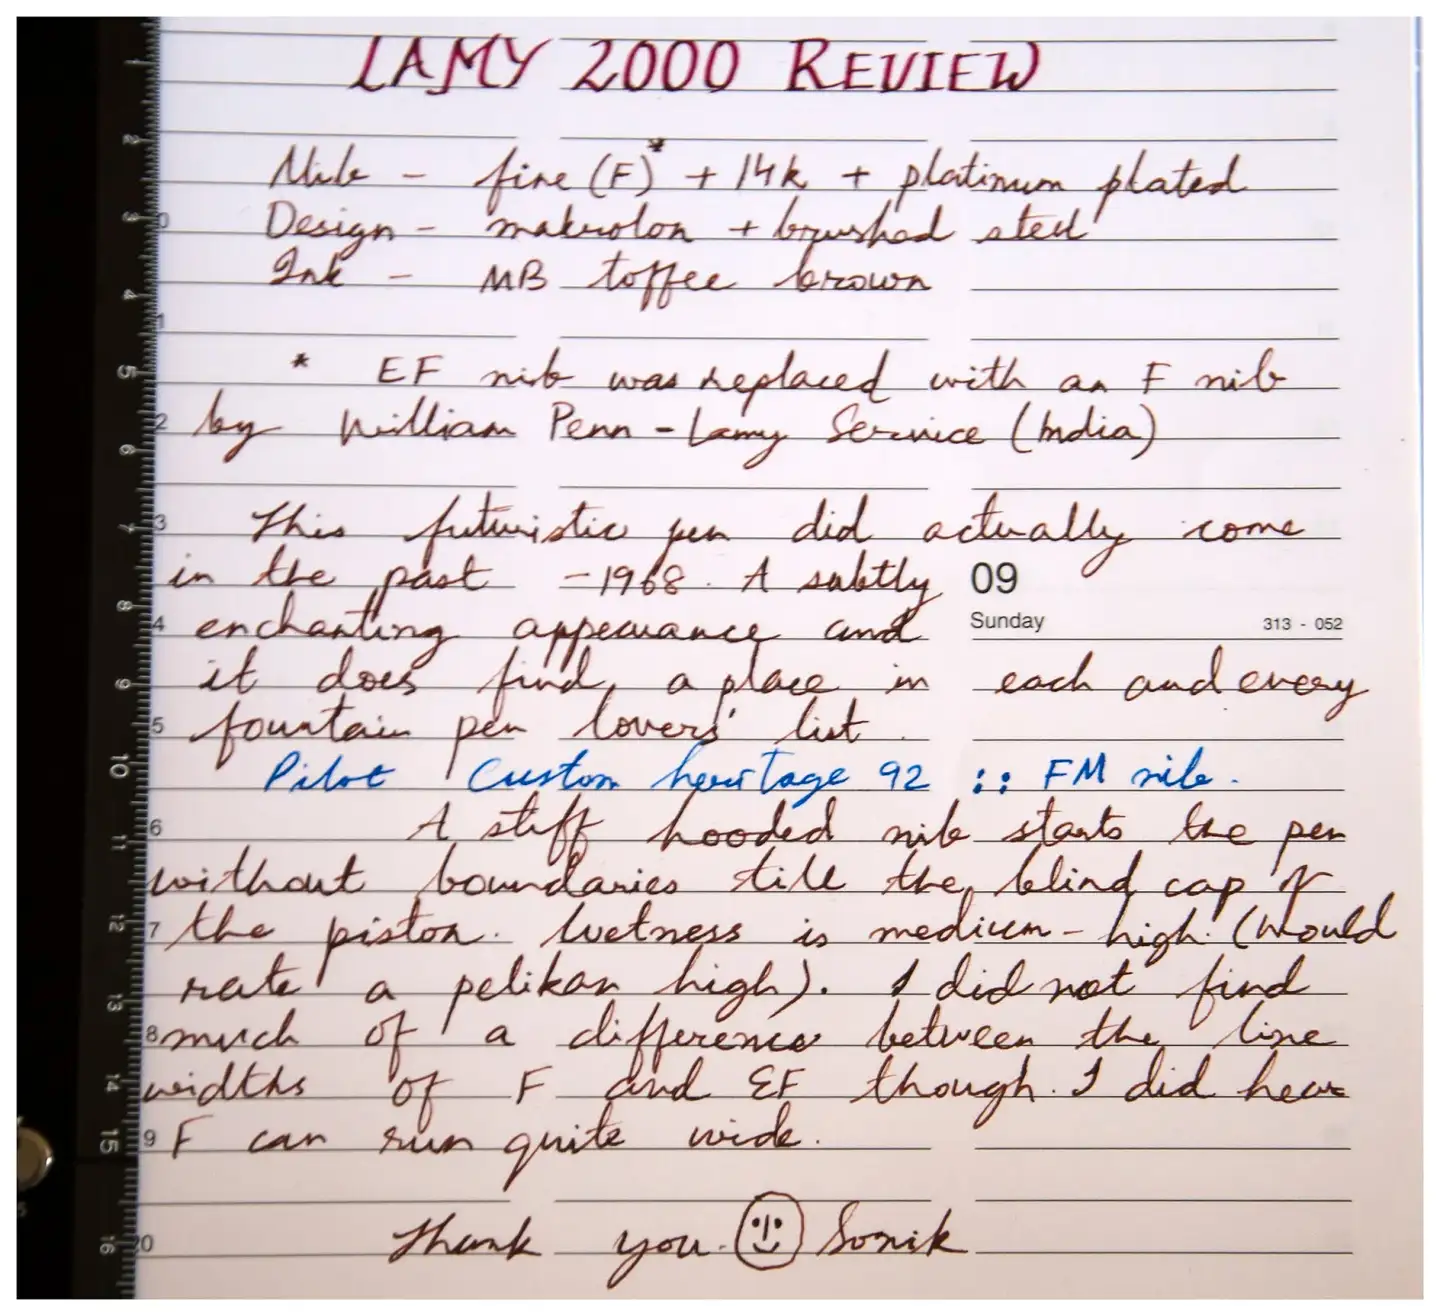 LAMY 2000 REVIEW
Nib - fine (F)* + 14k + platinum plated
Design - makrolon + brushed steel
Ink - MB toffee brown
* EF nib was replaced with an F nib
by William Penn - Lamy Service (India)
This futuristic pen did actually come
in the past - 1968. A subtly
09
Sunday 313 - 052
enchanting appearance and
it does find a place in each and every
fountain pen lovers' list.
Pilot Custom heritage 92 :: FM nib.
A stiff hooded nib starts the pen
without boundaries till the blind cap of
the piston. Wetness is medium-high. (Would
rate a pelikan high). I did not find
much of a difference between the line
widths of F and EF though. I did hear
F can run quite wide.
Thank you. Sonik
1
2
3
4
5
6
7
8
9
10
11
12
13
14
15
16